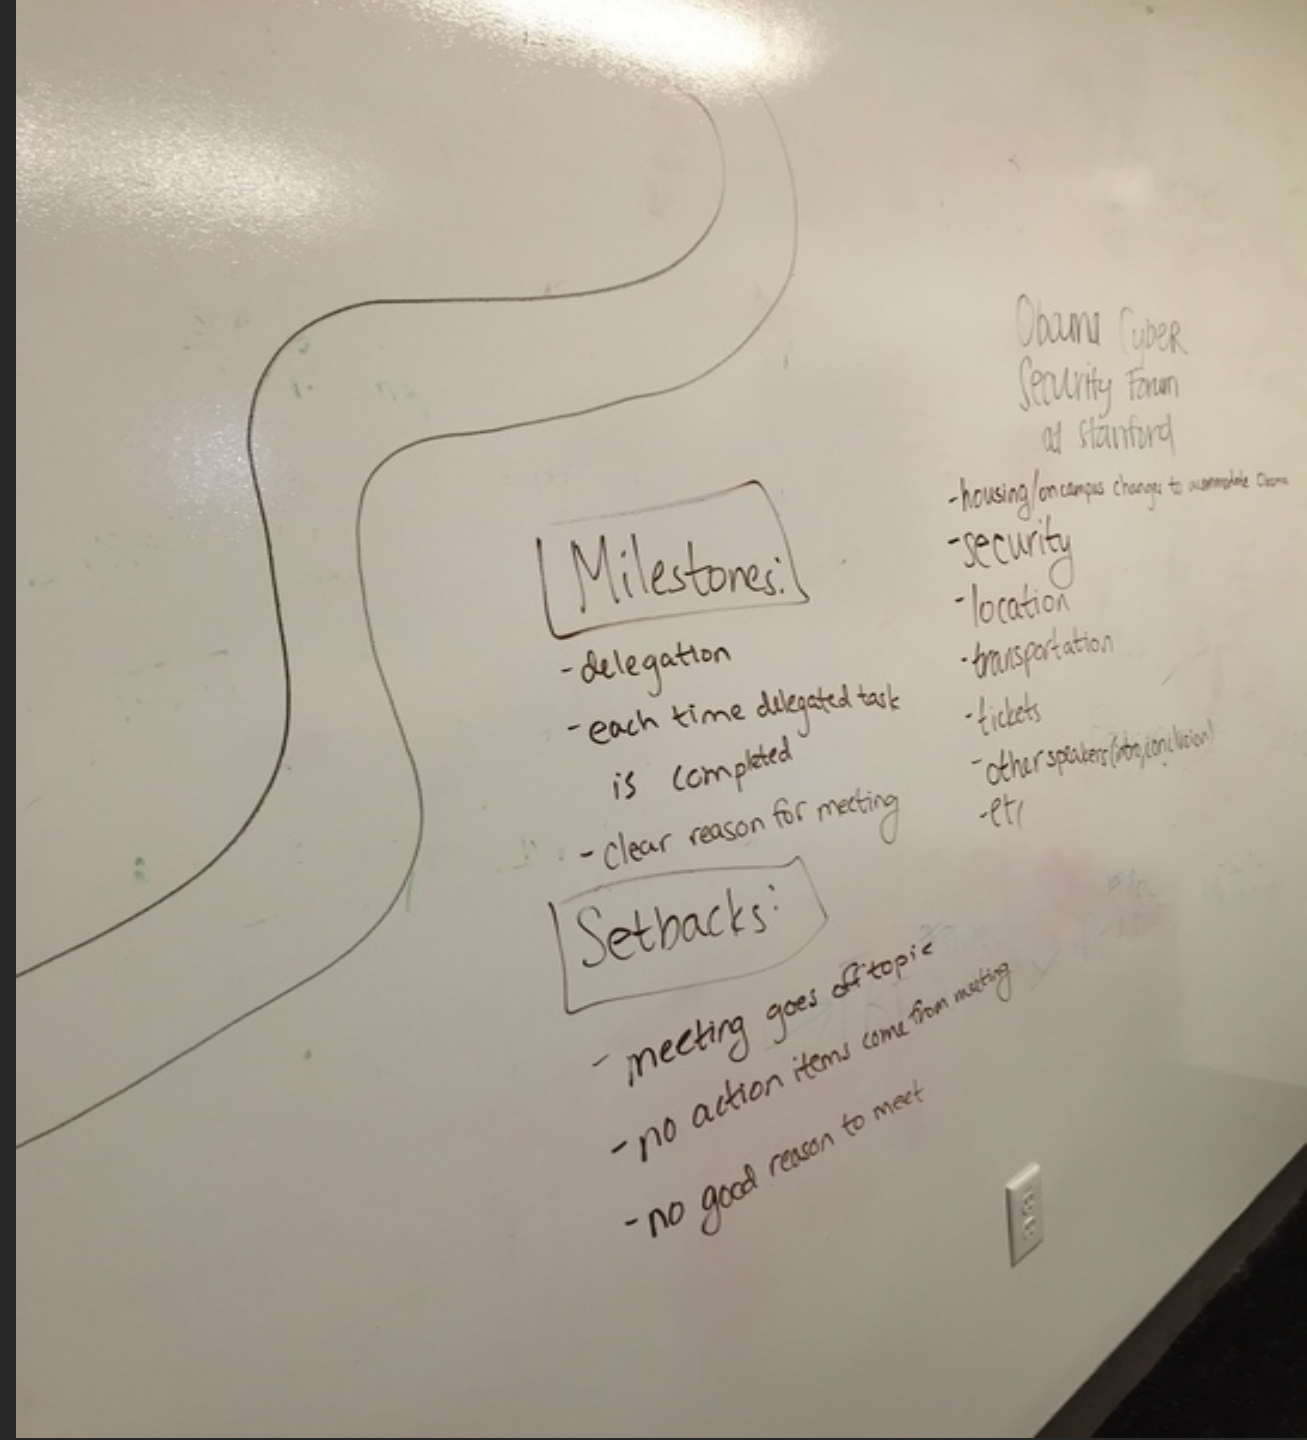 Milestones:
- delegation
- each time delegated task
is completed
- clear reason for meeting
Setbacks:
- meeting goes off topic
- no action items come from meeting
- no good reason to meet
Obama Cyber
Security Forum
at Stanford
- housing/on campus changes to accommodate Obama
- security
- location
- transportation
- tickets
- other speakers (intro, conclusion)
- etc